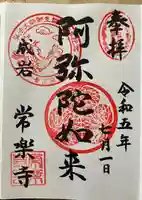 奉拝
令和五年
七月一日
阿弥陀如来
成岩
常楽寺